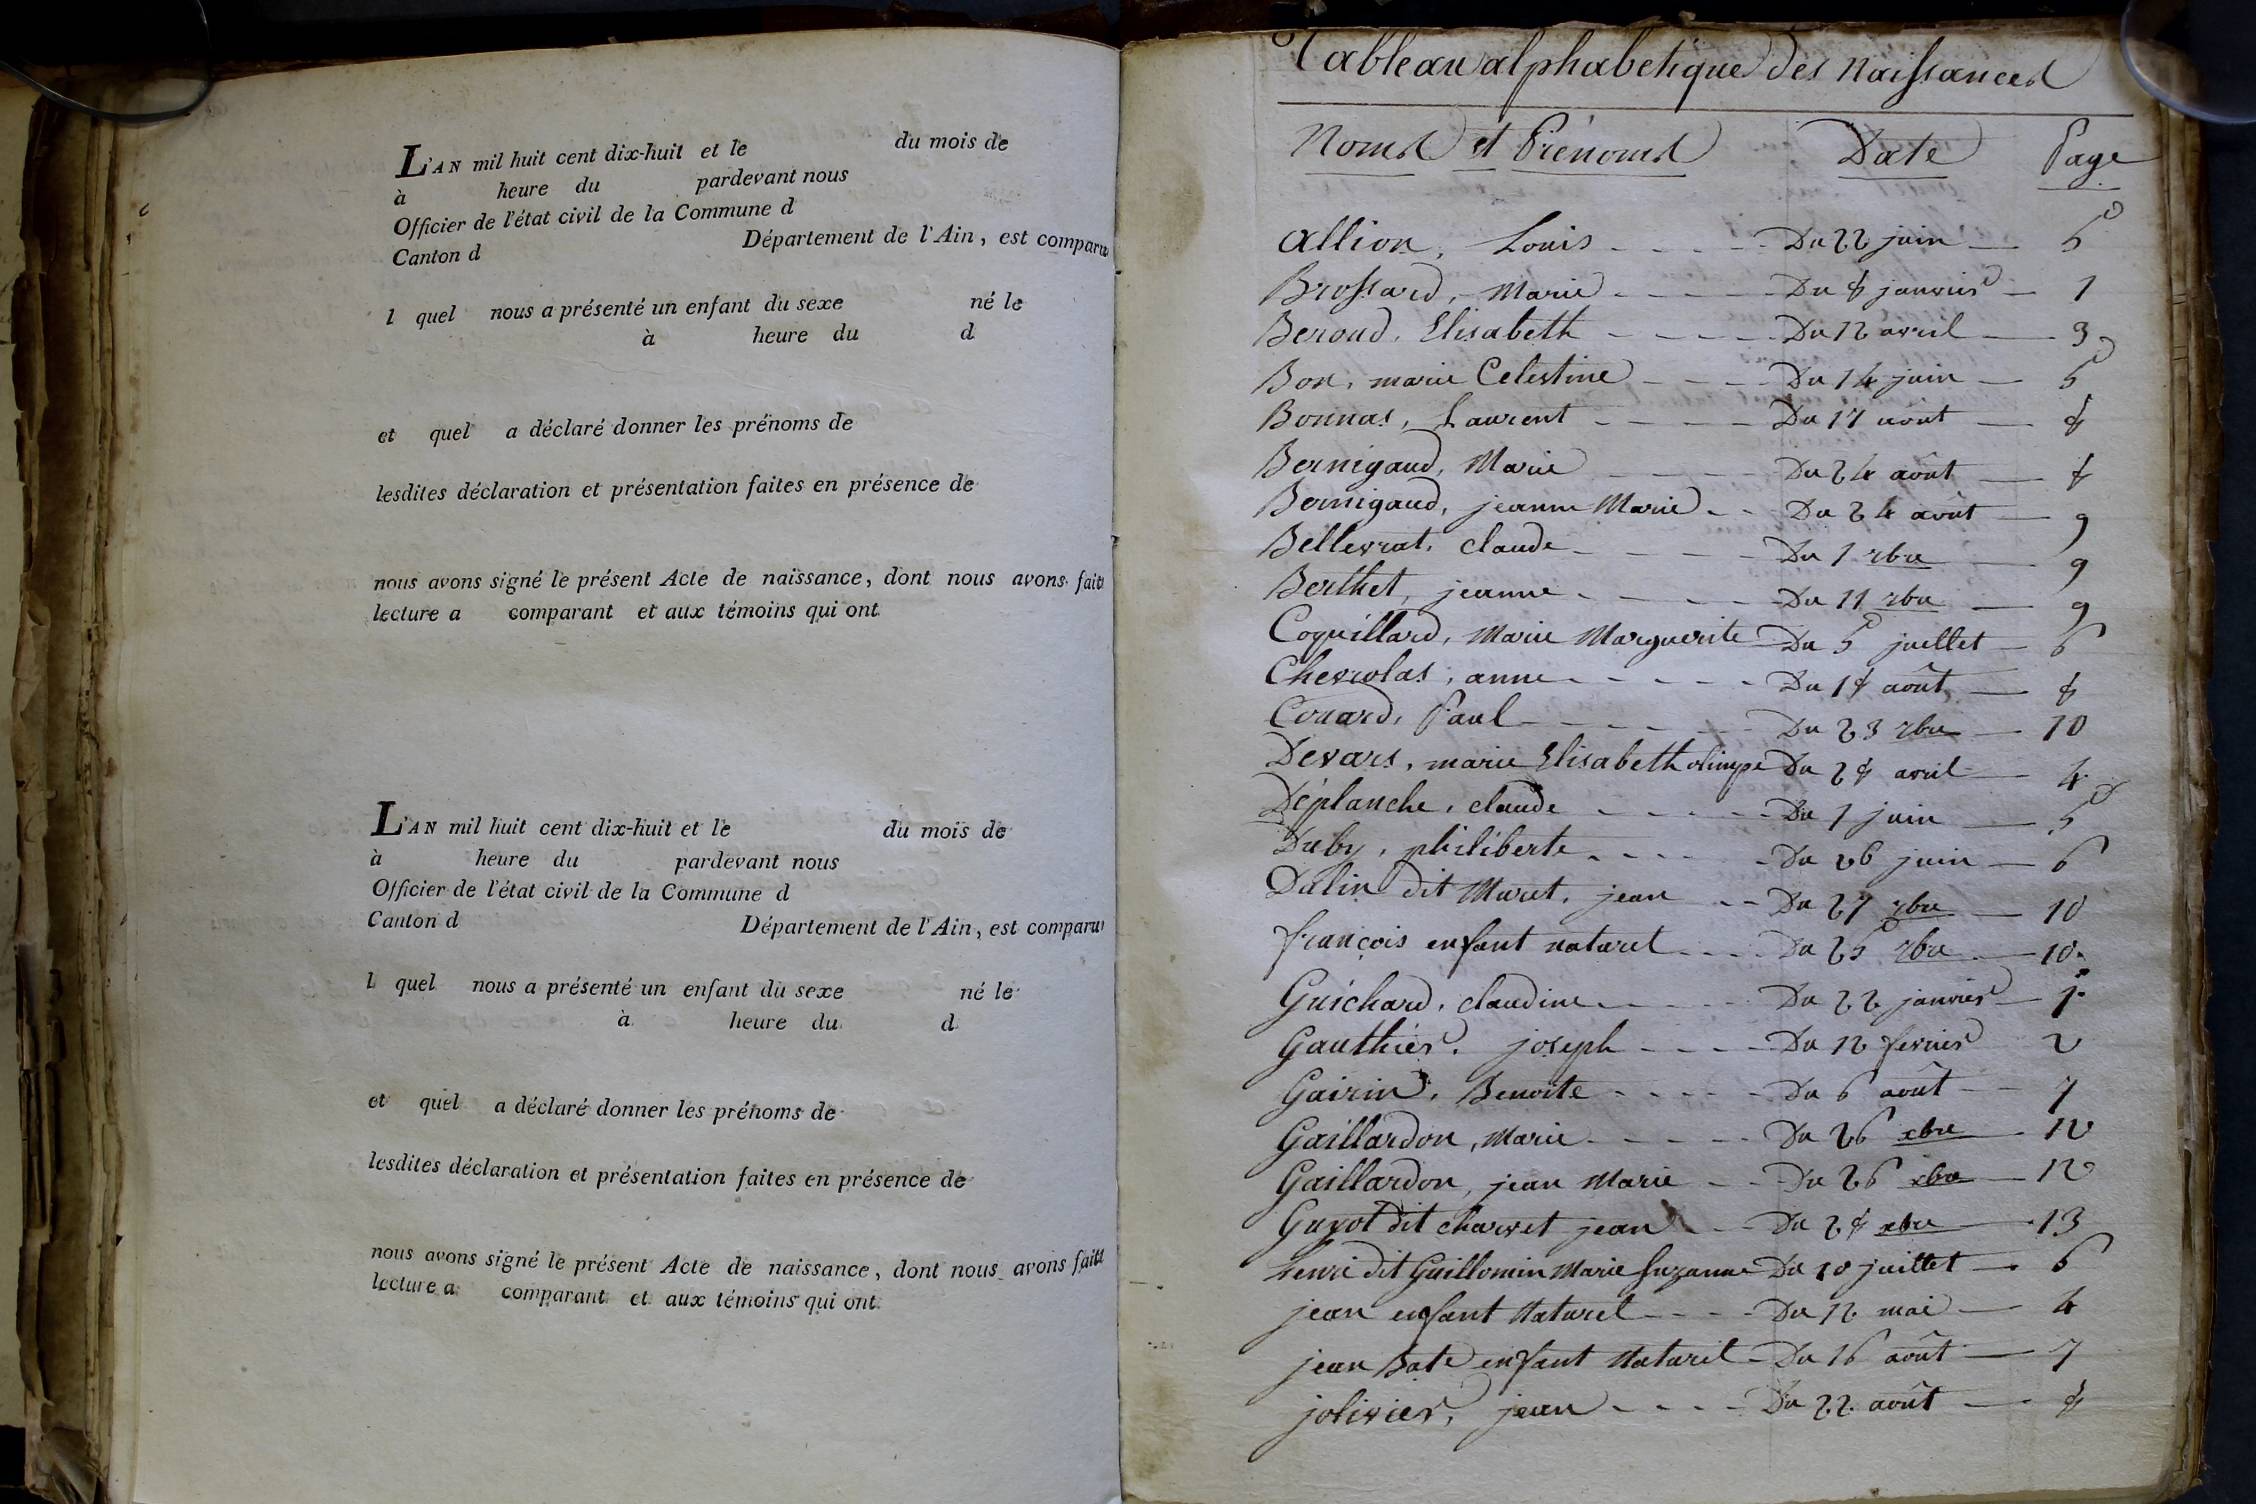 L'AN mil huit cent dix-huit et le du mois de
à heure du pardevant nous
Officier de l'état civil de la Commune d
Canton d Département de l'Ain, est comparu
l quel nous a présenté un enfant du sexe né le
à heure du d
et quel a déclaré donner les prénoms de
lesdites déclaration et présentation faites en présence de
nous avons signé le présent Acte de naissance, dont nous avons fait
lecture a comparant et aux témoins qui ont
L'AN mil huit cent dix-huit et le du mois de
à heure du pardevant nous
Officier de l'état civil de la Commune d
Canton d Département de l'Ain, est comparu
l quel nous a présenté un enfant du sexe né le
à heure du d
et quel a déclaré donner les prénoms de
lesdites déclaration et présentation faites en présence de
nous avons signé le présent Acte de naissance, dont nous avons fait
lecture a comparant et aux témoins qui ont
Tableau alphabetique des Naissances
Noms et Prénoms Date Page
Allion, Louis - - - - Du 22 juin — 5
Brossard, Marie - - - - Du 8 janvier — 1
Beroud, Elisabeth - - - - Du 12 avril — 3
Bon, marie Celestine - - - Du 14 juin — 5
Bonnas, Laurent - - - - Du 17 août — 8
Bernigaud, Marie - - - Du 24 août — 8
Bernigaud, jeanne Marie - - Du 24 août — 9
Bellevrat, claude - - - - Du 1 7bre — 9
Berthet, jeanne - - - - Du 11 7bre — 9
Coquillard, Marie Marguerite Du 5 juillet — 6
Chevrolas, anne - - - - Du 18 août — 8
Couard, Paul - - - - Du 23 7bre — 10
Devars, marie Elisabeth olimpe Du 28 avril — 4
Déplanche, claude - - - - Du 1 juin — 5
Duby, philiberte - - - - Du 26 juin — 6
Dalin dit Muret, jean - - Du 27 7bre — 10
françois enfant naturel - - - - Du 25 7bre — 10
Guichard, claudine - - - - Du 22 janvier — 1
Gauthier, joseph - - - - Du 12 fevrier 2
Gairin, Benoite - - - - Du 6 août — 7
Gaillardon, Marie - - - - Du 26 xbre — 12
Gaillardon, jean Marie - - Du 26 xbre — 12
Guyot dit charvet jean - Du 28 xbre — 13
henri dit Guillomin Marie Suzanne Du 10 juillet — 6
jean enfant Naturel - - - - Du 12 mai — 4
jean Bate enfant Naturel - Du 16 août — 7
jolivier, jean - - - - Du 22 août — 8